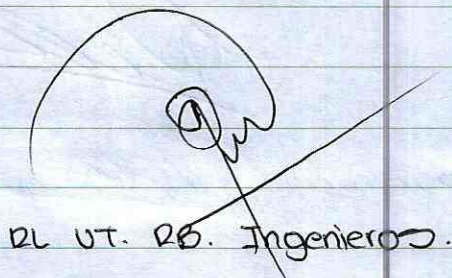 RL UT. RB. Ingenieros.